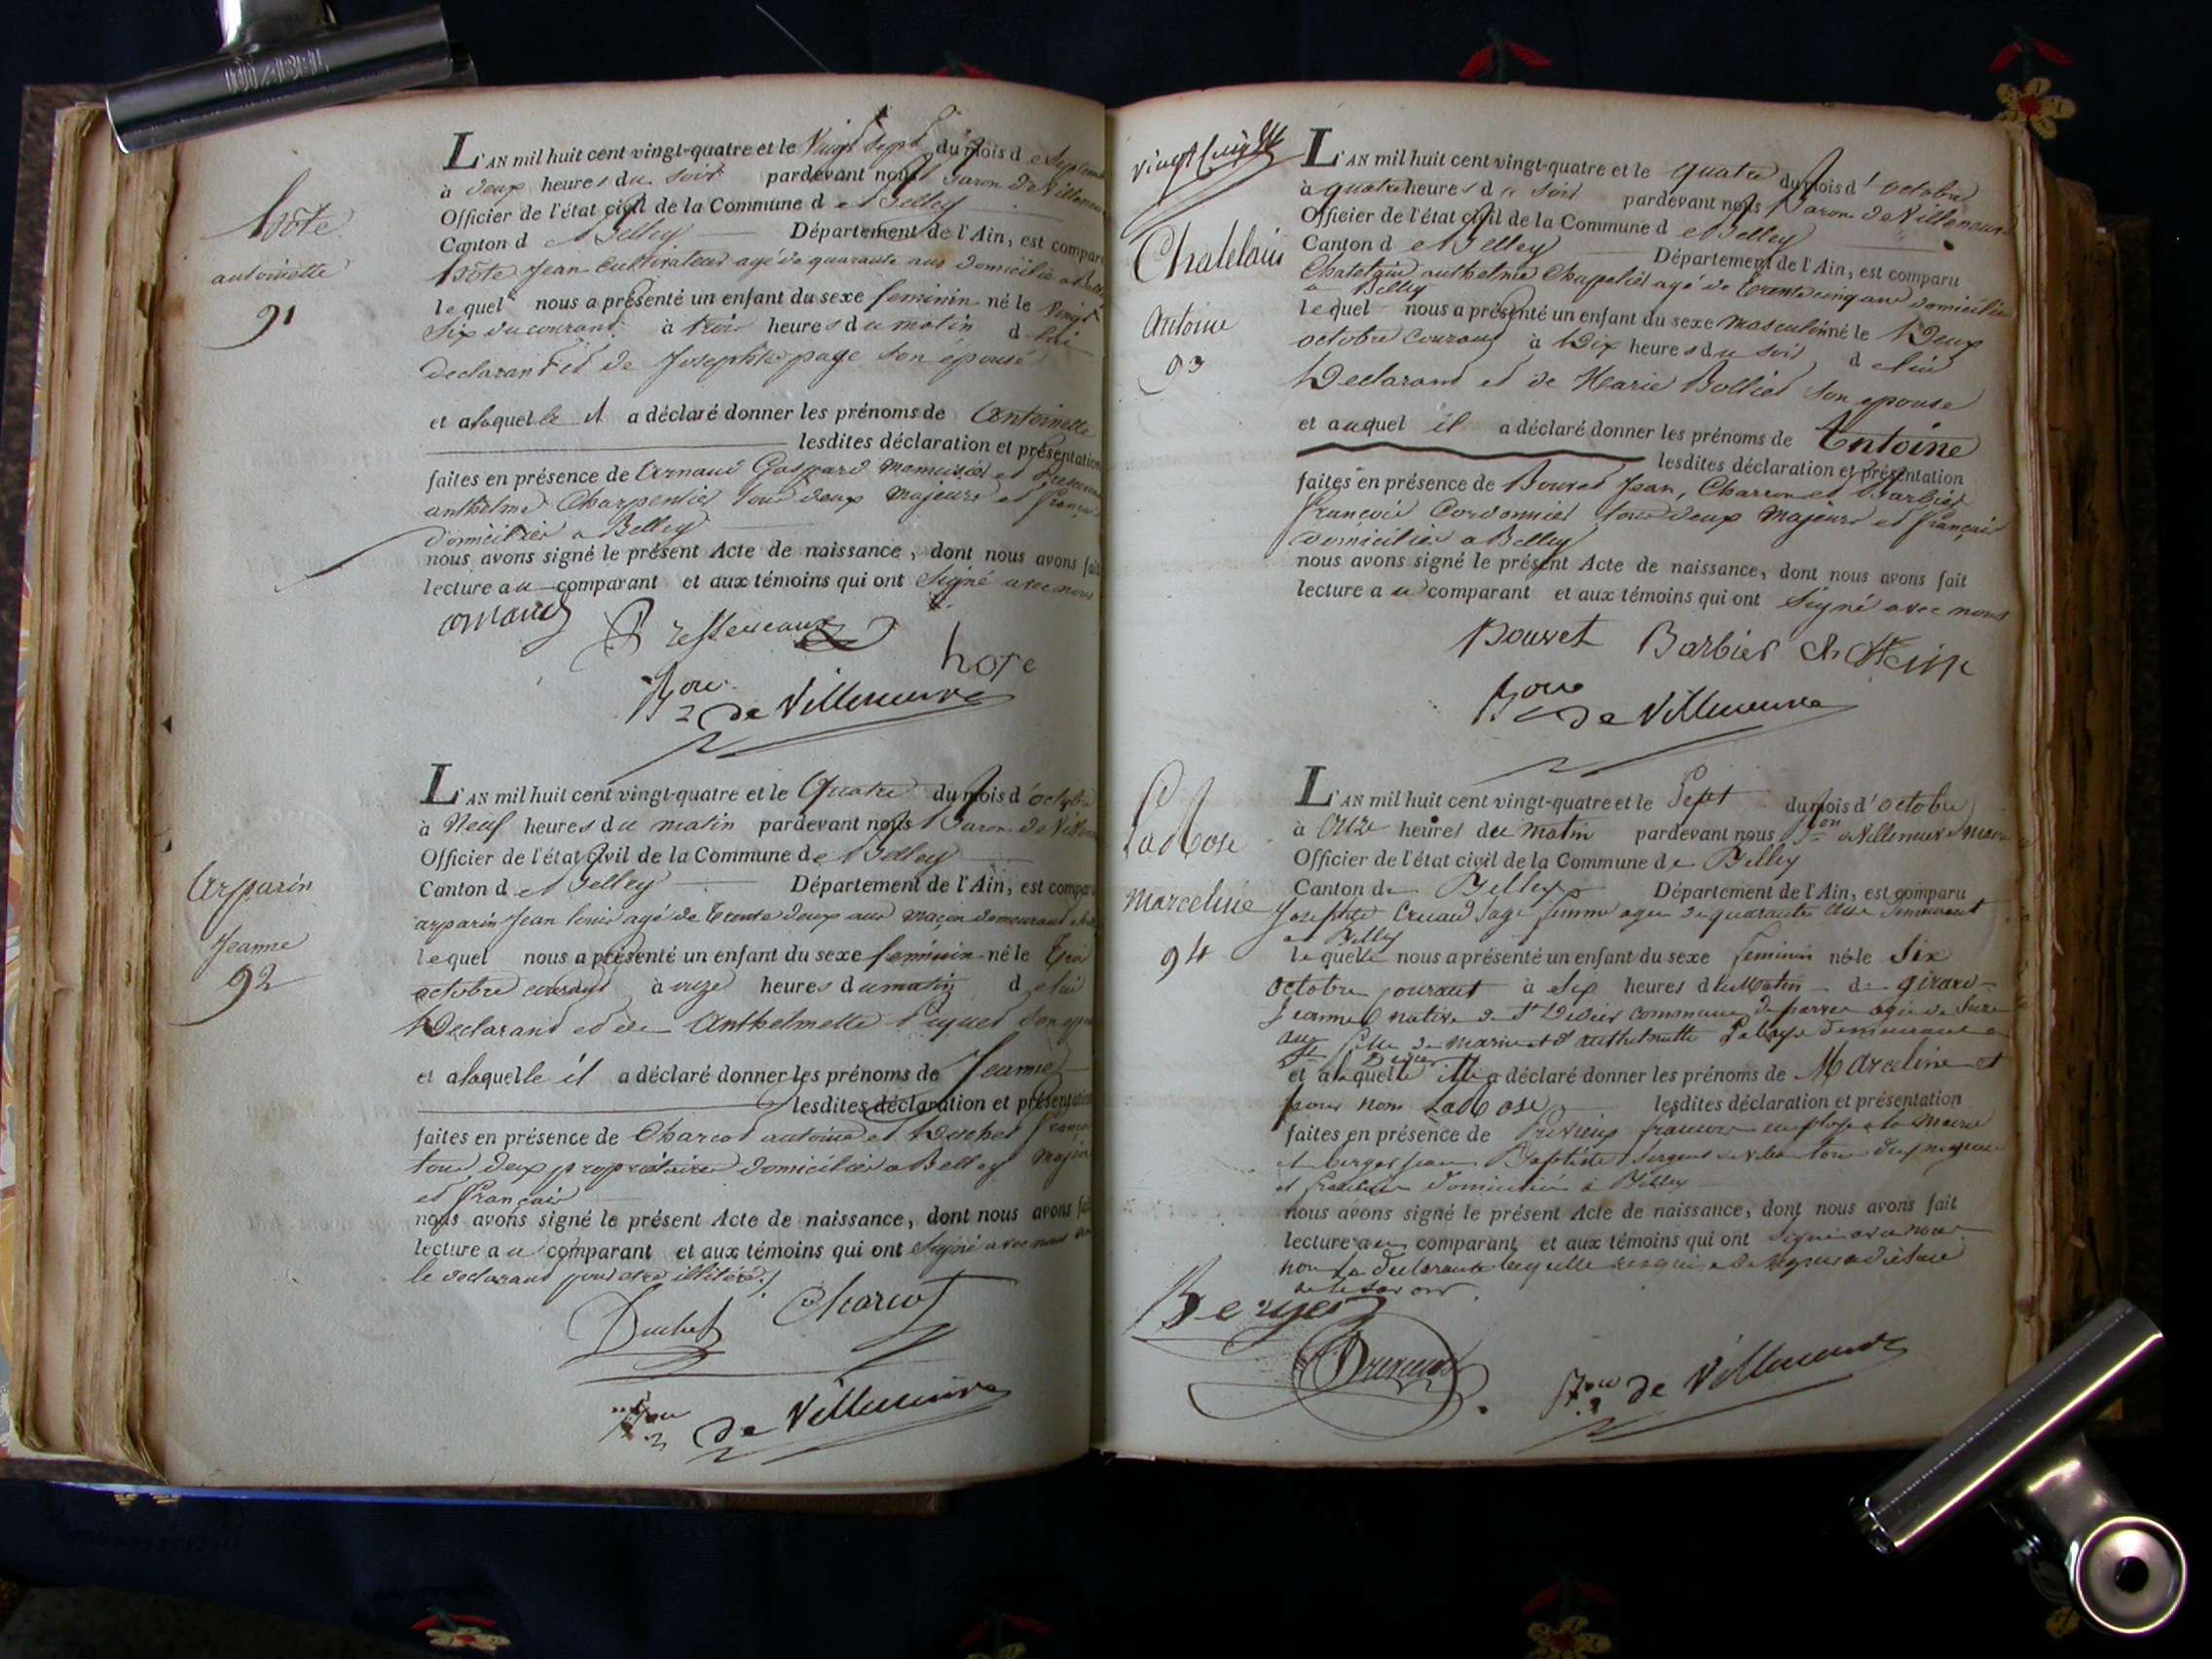 hôte
antoinette
91
L'AN mil huit cent vingt-quatre et le Vingt Sept du mois de Septembre
à deux heures du soir pardevant nous Baron de Villeneuve
Officier de l'état civil de la Commune de Belley
Canton de Belley Département de l'Ain, est comparu
hôte Jean Cultivateur agé de quarante ans domicilié a Belley
lequel nous a présenté un enfant du sexe feminin né le Vingt
Six du courant à trois heures du matin de lui
declarant et de Josephte page son épouse
et a laquelle il a déclaré donner les prénoms de Antoinette
lesdites déclaration et présentation
faites en présence de Arnaud Gaspard menuisier et
anthelme Charpentier tous deux majeurs et français
domiciliés a Belley
nous avons signé le présent Acte de naissance, dont nous avons fait
lecture au comparant et aux témoins qui ont Signé avec nous
hote
Bon de Villeneuve
Arparin
Jeanne
92
L'AN mil huit cent vingt-quatre et le Quatre du mois d'octobre
à Neuf heures du matin pardevant nous Baron de Villeneuve
Officier de l'état civil de la Commune de Belley
Canton de Belley Département de l'Ain, est comparu
arparin Jean louis agé de trente deux ans maçon demeurant
lequel nous a présenté un enfant du sexe feminin né le trois
octobre courant à onze heures du matin de lui
Declarant et de Anthelmette Piquet Son
et a laquelle il a déclaré donner les prénoms de Jeanne
lesdites déclaration et présentation
faites en présence de Charcot antoine et Duchet françois
tous deux propriétaires domiciliés a Belley Majeurs
et français
nous avons signé le présent Acte de naissance, dont nous avons fait
lecture au comparant et aux témoins qui ont Signé avec nous non
le declarant pour etre illitéré
Duchet Charcot
Bon de Villeneuve
Chatelain
Antoine
93
L'AN mil huit cent vingt-quatre et le quatre du mois d'octobre
à quatre heures du soir pardevant nous Baron de Villeneuve
Officier de l'état civil de la Commune de Belley
Canton de Belley Département de l'Ain, est comparu
Chatelain anthelme Chapelier agé de trente cinq ans domicilié
a Belley
lequel nous a présenté un enfant du sexe masculin né le Deux
octobre courant à Dix heures du soir de lui
Declarant et de Marie Bolliet son epouse
et auquel il a déclaré donner les prénoms de Antoine
lesdites déclaration et présentation
faites en présence de Bouvet Jean, Charron et Barbier
françois Cordonnier tous deux majeurs et français
domiciliés a Belley
nous avons signé le présent Acte de naissance, dont nous avons fait
lecture au comparant et aux témoins qui ont Signé avec nous
Bouvet Barbier
Bon de Villeneuve
LaRose
Marceline
94
L'AN mil huit cent vingt-quatre et le Sept du mois d'octobre
à onze heures du matin pardevant nous Bon de Villeneuve maire
Officier de l'état civil de la Commune de Belley
Canton de Belley Département de l'Ain, est comparu
Josephte Sage femme agée de quarante demeurant
a Belley
laquelle nous a présenté un enfant du sexe feminin né le Six
octobre courant à Six heures du Matin de girard
Jeanne native de St Didier commune de agée de
ans fille de et d'anthelmette demeurant a
St Didier
et a laquelle elle a déclaré donner les prénoms de Marceline et
pour nom LaRose lesdites déclaration et présentation
faites en présence de françois employé a la Mairie
et berger Jean Baptiste Sergent de ville tous deux majeurs
et français domiciliés à Belley
nous avons signé le présent Acte de naissance, dont nous avons fait
lecture au comparant et aux témoins qui ont Signé avec nous
non la declarante laquelle requise de Signer a dit
ne le savoir
Berger
Bon de Villeneuve